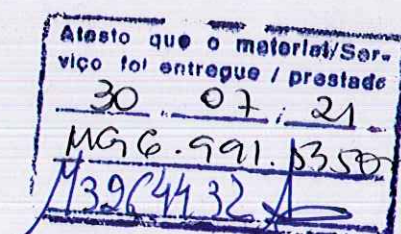 Atesto que o material/Ser-
viço foi entregue / prestado
30 . 07 . 21
MG 6.991.